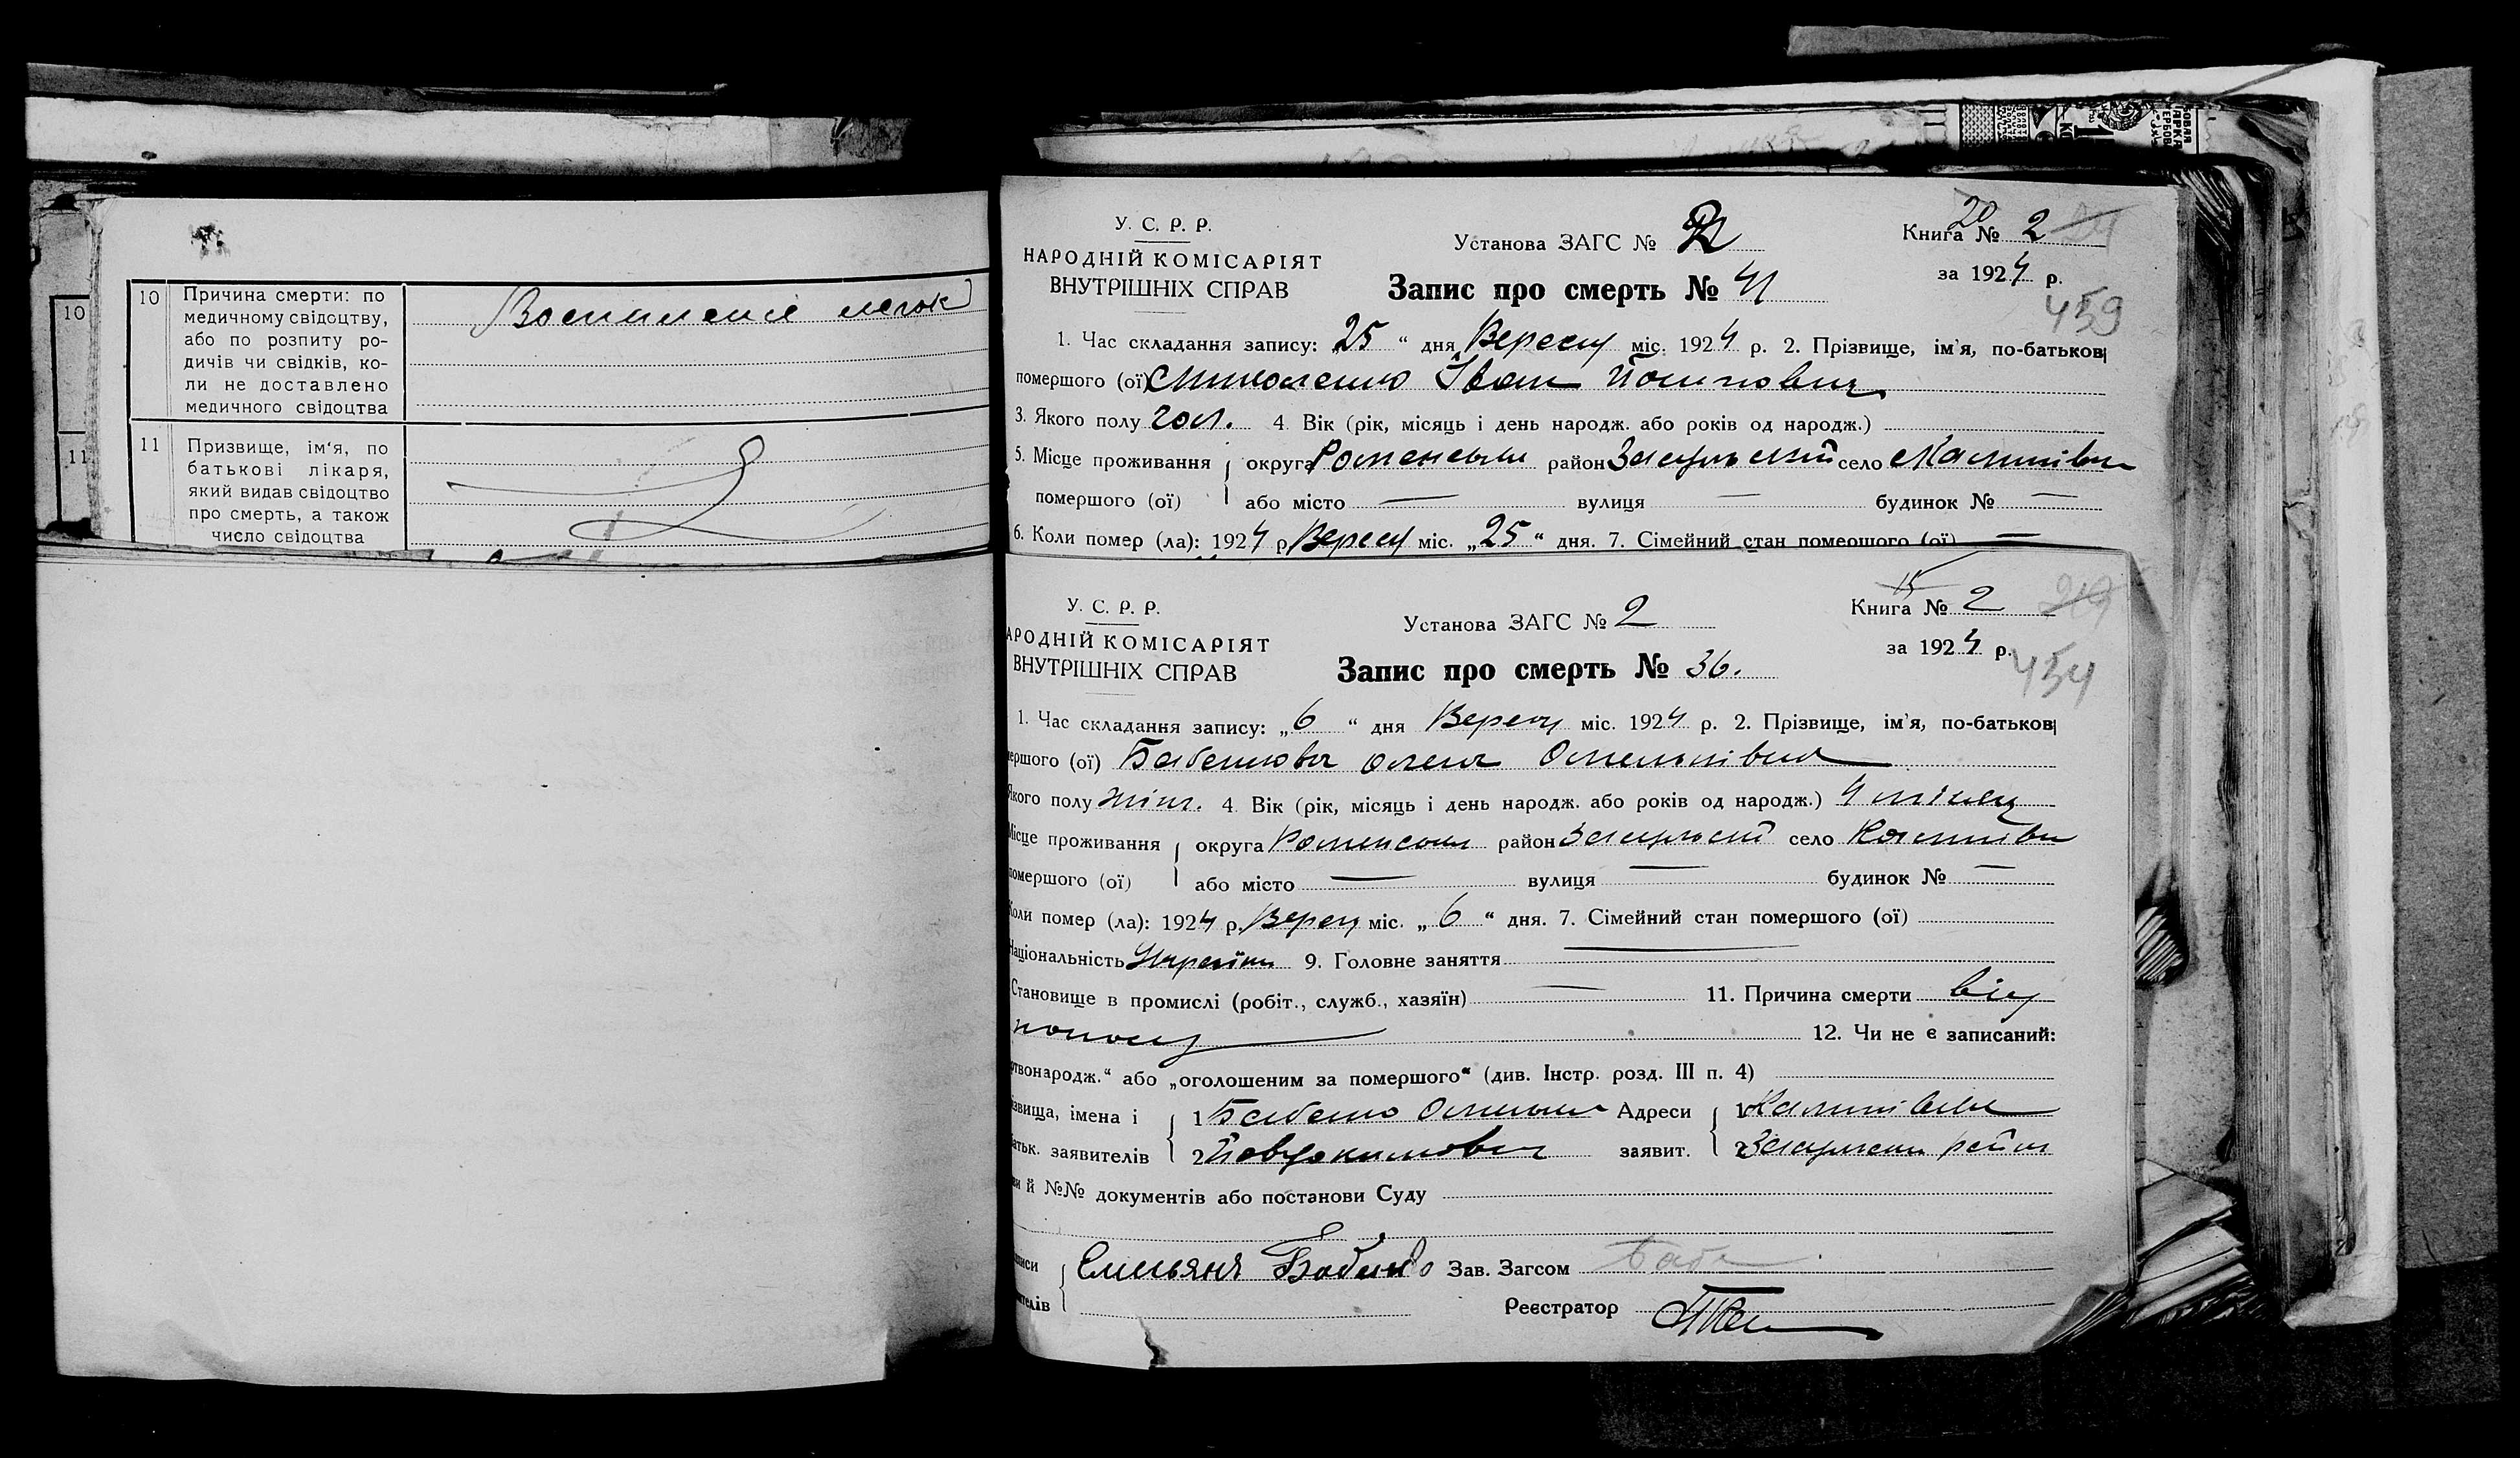 10
11
10 Причина смерти: по
медичному свідоцтву,
або по розпиту ро-
дичів чи свідків, ко-
ли не доставлено
медичного свідоцтва
Воспаление легок
11 Призвище, ім‘я, по
батькові лікаря,
який видав свідоцтво
про смерть, а також
число свідоцтва
У. С. Р. Р.
НАРОДНІЙ КОМІСАРІЯТ
ВНУТРІШНІХ СПРАВ
Установа ЗАГС № 2
Запис про смерть № 41
20
Книга № 2
за 1924 р.
459
1. Час складання запису: „25“ дня Вересня міс. 1924 р. 2. Прізвище, ім'я, по-батькові
помершого (ої) Іван
3. Якого полу чол. 4. Вік (рік, місяць і день народж. або років од народж.)
5. Місце проживання округа Роменська район Засульский село
помершого (ої) або місто — вулиця — будинок № —
6. Коли помер (ла): 1924 р. Вересня міс. „25“ дня. 7. Сімейний стан помершого (ої) —
У. С. Р. Р.
АРОДНІЙ КОМІСАРІЯТ
ВНУТРІШНІХ СПРАВ
Установа ЗАГС № 2
Запис про смерть № 36.
15
Книга № 2
за 1924 р.
454
1. Час складання запису: „6“ дня Вересня міс. 1924 р. 2. Прізвище, ім'я, по-батькові
ершого (ої) Бабенкова Олена Омельнівна
Якого полу жінч. 4. Вік (рік, місяць і день народж. або років од народж.) 4 місяц
Місце проживання округа Роменська район Засульский село
помершого (ої) або місто — вулиця — будинок № —
Коли помер (ла): 1924 р. Вересн міс. „6“ дня. 7. Сімейний стан помершого (ої)
Національність Україн 9. Головне заняття —
Становище в промислі (робіт., служб., хазяїн) — 11. Причина смерти від
поносу 12. Чи не є записаний:
ртвонародж.“ або „оголошеним за помершого“ (див. Інстр. розд. III п. 4)
ізвища, імена і 1 Бабенко Омельян Адреси 1
атьк. заявителів 2 Йовдокимович заявит. 2 Засульськ район
ви й №№ документів або постанови Суду
Емельяня Бабенко Зав. Загсом
Реєстратор